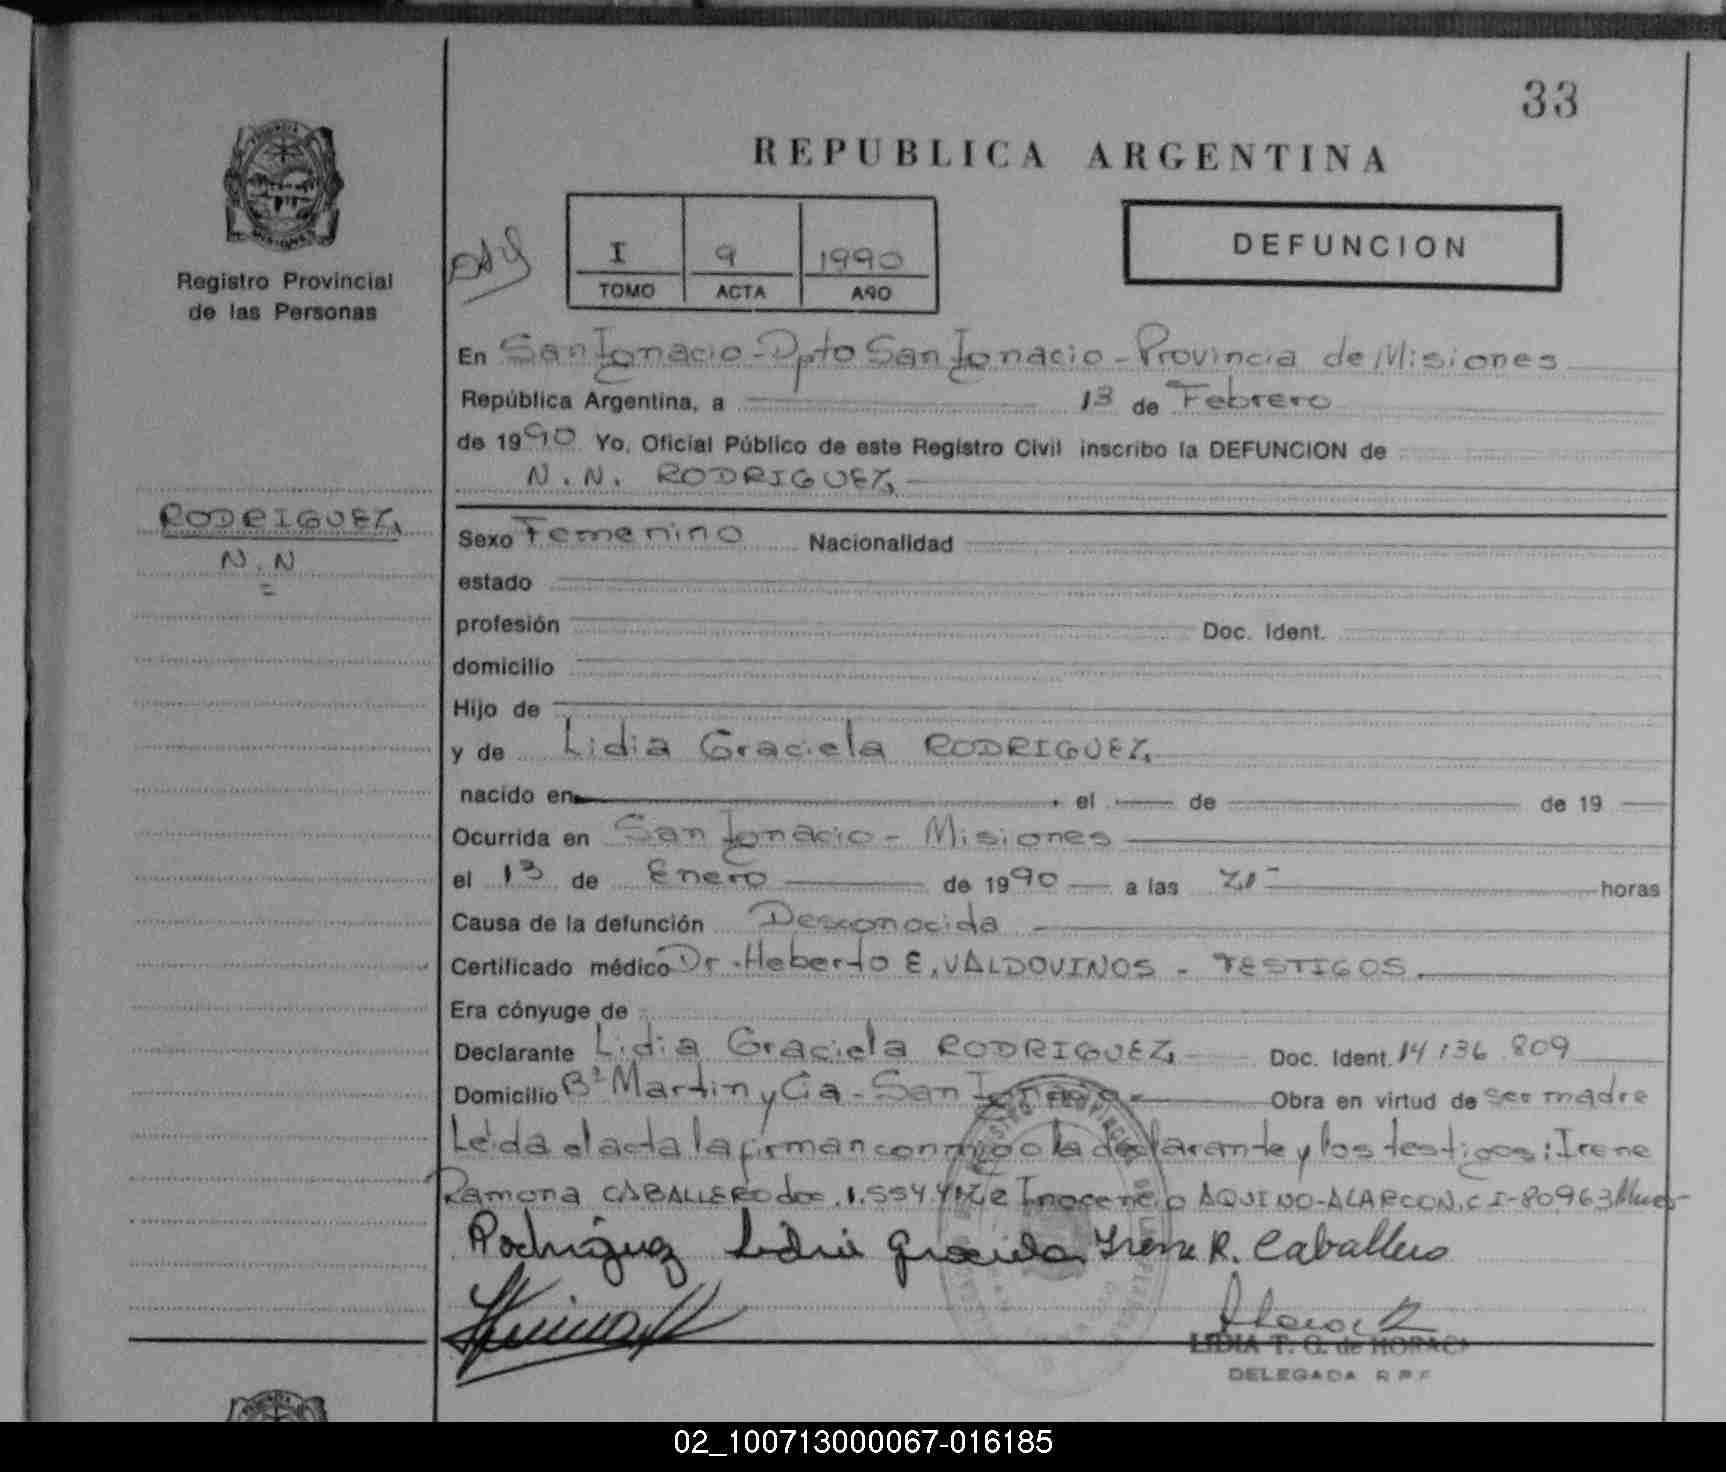 33
REPUBLICA ARGENTINA
Registro Provincial
de las Personas
I 9 1990
TOMO ACTA AÑO
DEFUNCION
En San Ignacio - Dpto San Ignacio - Provincia de Misiones
República Argentina, a 13 de Febrero
de 1990 Yo, Oficial Público de este Registro Civil inscribo la DEFUNCION de
N. N. RODRIGUEZ
RODRIGUEZ
N. N
Sexo Femenino Nacionalidad
estado
profesión Doc. Ident.
domicilio
Hijo de
y de Lidia Graciela RODRIGUEZ
nacido en el de de 19
Ocurrida en San Ignacio - Misiones
el 13 de Enero de 1990 a las 21 horas
Causa de la defunción Desconocida
Certificado médico Dr. Heberto E. VALDOVINOS - TESTIGOS.
Era cónyuge de
Declarante Lidia Graciela RODRIGUEZ Doc. Ident. 14 136 809
Domicilio Bº Martin y Cia - San Ignacio - Obra en virtud de ser madre
Leida el acta la firman conmigo la declarante y los testigos: Irene
Ramona CABALLERO doc. e Inocencio AQUINO-ALARCON, C I-80963
Rodriguez Lidia Graciela Irene R. Caballero
LIDIA T. G. de HORAC
DELEGADA R P
02_100713000067-016185